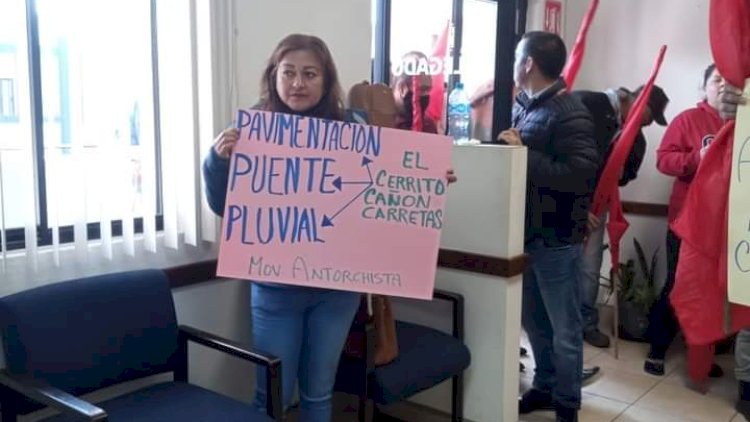 PAVIMENTACIÓN
PUENTE
PLUVIAL
EL
CERRITO
CAÑON
CARRETAS
MOV ANTORCHISTA